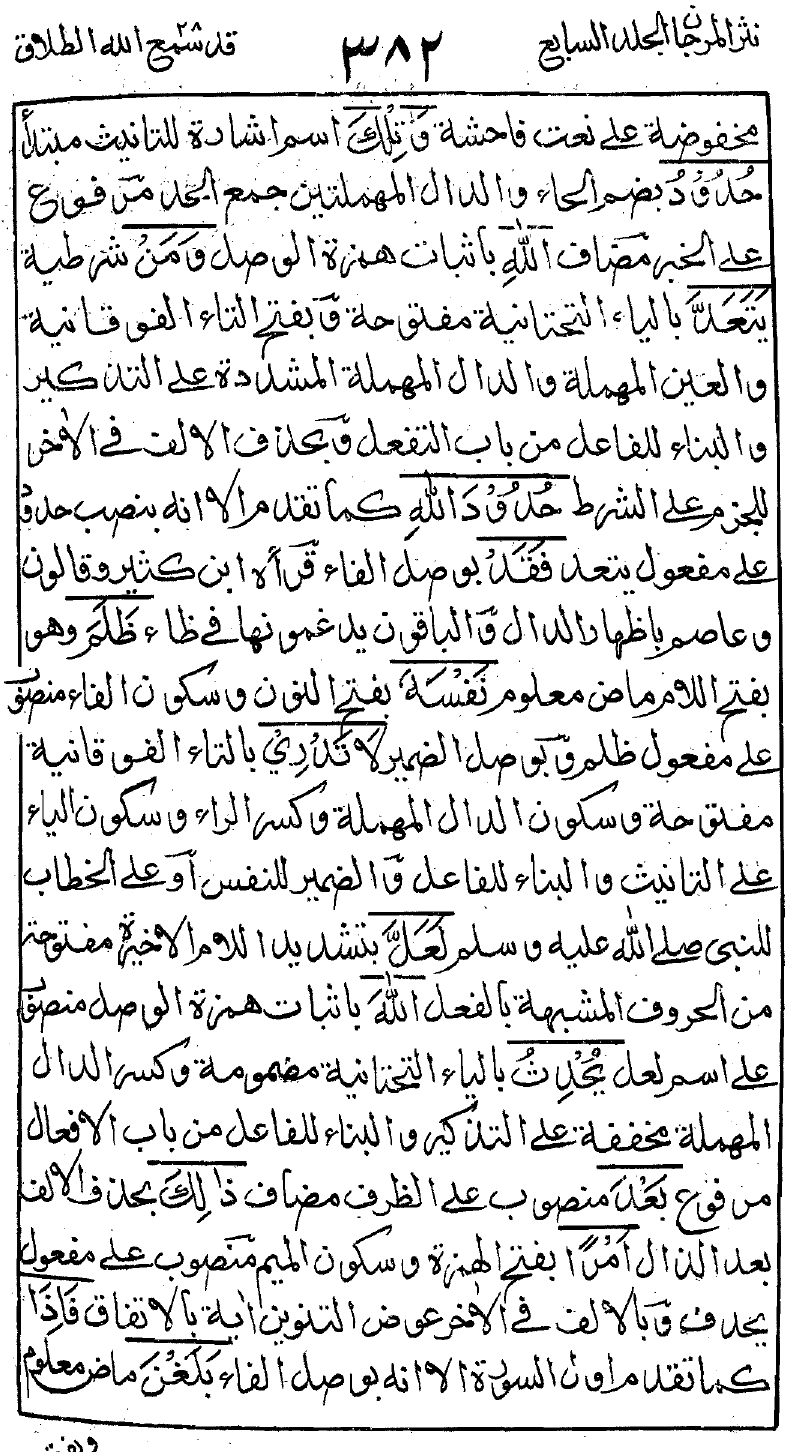 نثر المرجان الجلد السابع ٣٨٢ قد سمع الله ٢٨ الطلاق
مخفوضة على نعت فاحشة وَتِلْكَ اسم اشارة للتانيث مبتدأ
حُدُوْدُ بضم الحاء والدال المهملتين جمع الحد مرفوع
على الخبر مضاف اللهِ باثبات همزة الوصل وَمَنْ شرطية
يَتَعَدَّ بالياء التحتانية مفتوحة وبفتح التاء الفوقانية
والعين المهملة والدال المهملة المشددة على التذكير
والبناء للفاعل من باب التفعل وبحذف الالف في الاخر
للجزم على الشرط حُدُوْدَ اللهِ كما تقدم الا انه بنصب حدود
على مفعول يتعد فَقَدْ بوصل الفاء قرأه ابن كثير وقالون
وعاصم باظهار الدال والباقون يدغمونها في ظاء ظَلَمَ وهو
بفتح اللام ماض معلوم نَفْسَهٗ بفتح النون وسكون الفاء منصوب
على مفعول ظلم وبوصل الضمير لَا تَدْرِيْ بالتاء الفوقانية
مفتوحة وسكون الدال المهملة وكسر الراء وسكون الياء
على التانيث والبناء للفاعل والضمير للنفس أو على الخطاب
للنبي صلى الله عليه وسلم لَعَلَّ بتشديد اللام الاخيرة مفتوحة
من الحروف المشبهة بالفعل اللهَ باثبات همزة الوصل منصوب
على اسم لعل يُحْدِثُ بالياء التحتانية مضمومة وكسر الدال
المهملة مخففة على التذكير والبناء للفاعل من باب الافعال
مرفوع بَعْدَ منصوب على الظرف مضاف ذٰلِكَ بحذف الالف
بعد الذال اَمْرًا بفتح الهمزة وسكون الميم منصوب على مفعول
يحدث وبالالف في الاخر عوض التنوين اية بالاتفاق فَاِذَا
كما تقدم اول السورة الا انه بوصل الفاء بَلَغْنَ ماض معلوم
وبفتح